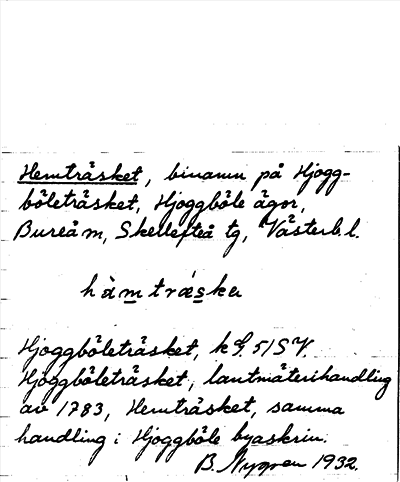 Hemträsket, binamn på Hjogg-
böleträsket, Hjoggböle ägor,
Bureå m, Skellefteå tg, Västerb. l.
hàmtræska
Hjoggböleträsket, k G. 51 SV.
Hjoggböleträsket, lantmäterihandling
av 1783, Hemträsket, samma
handling i Hjoggböle byaskrin.
B. Nygren 1932.